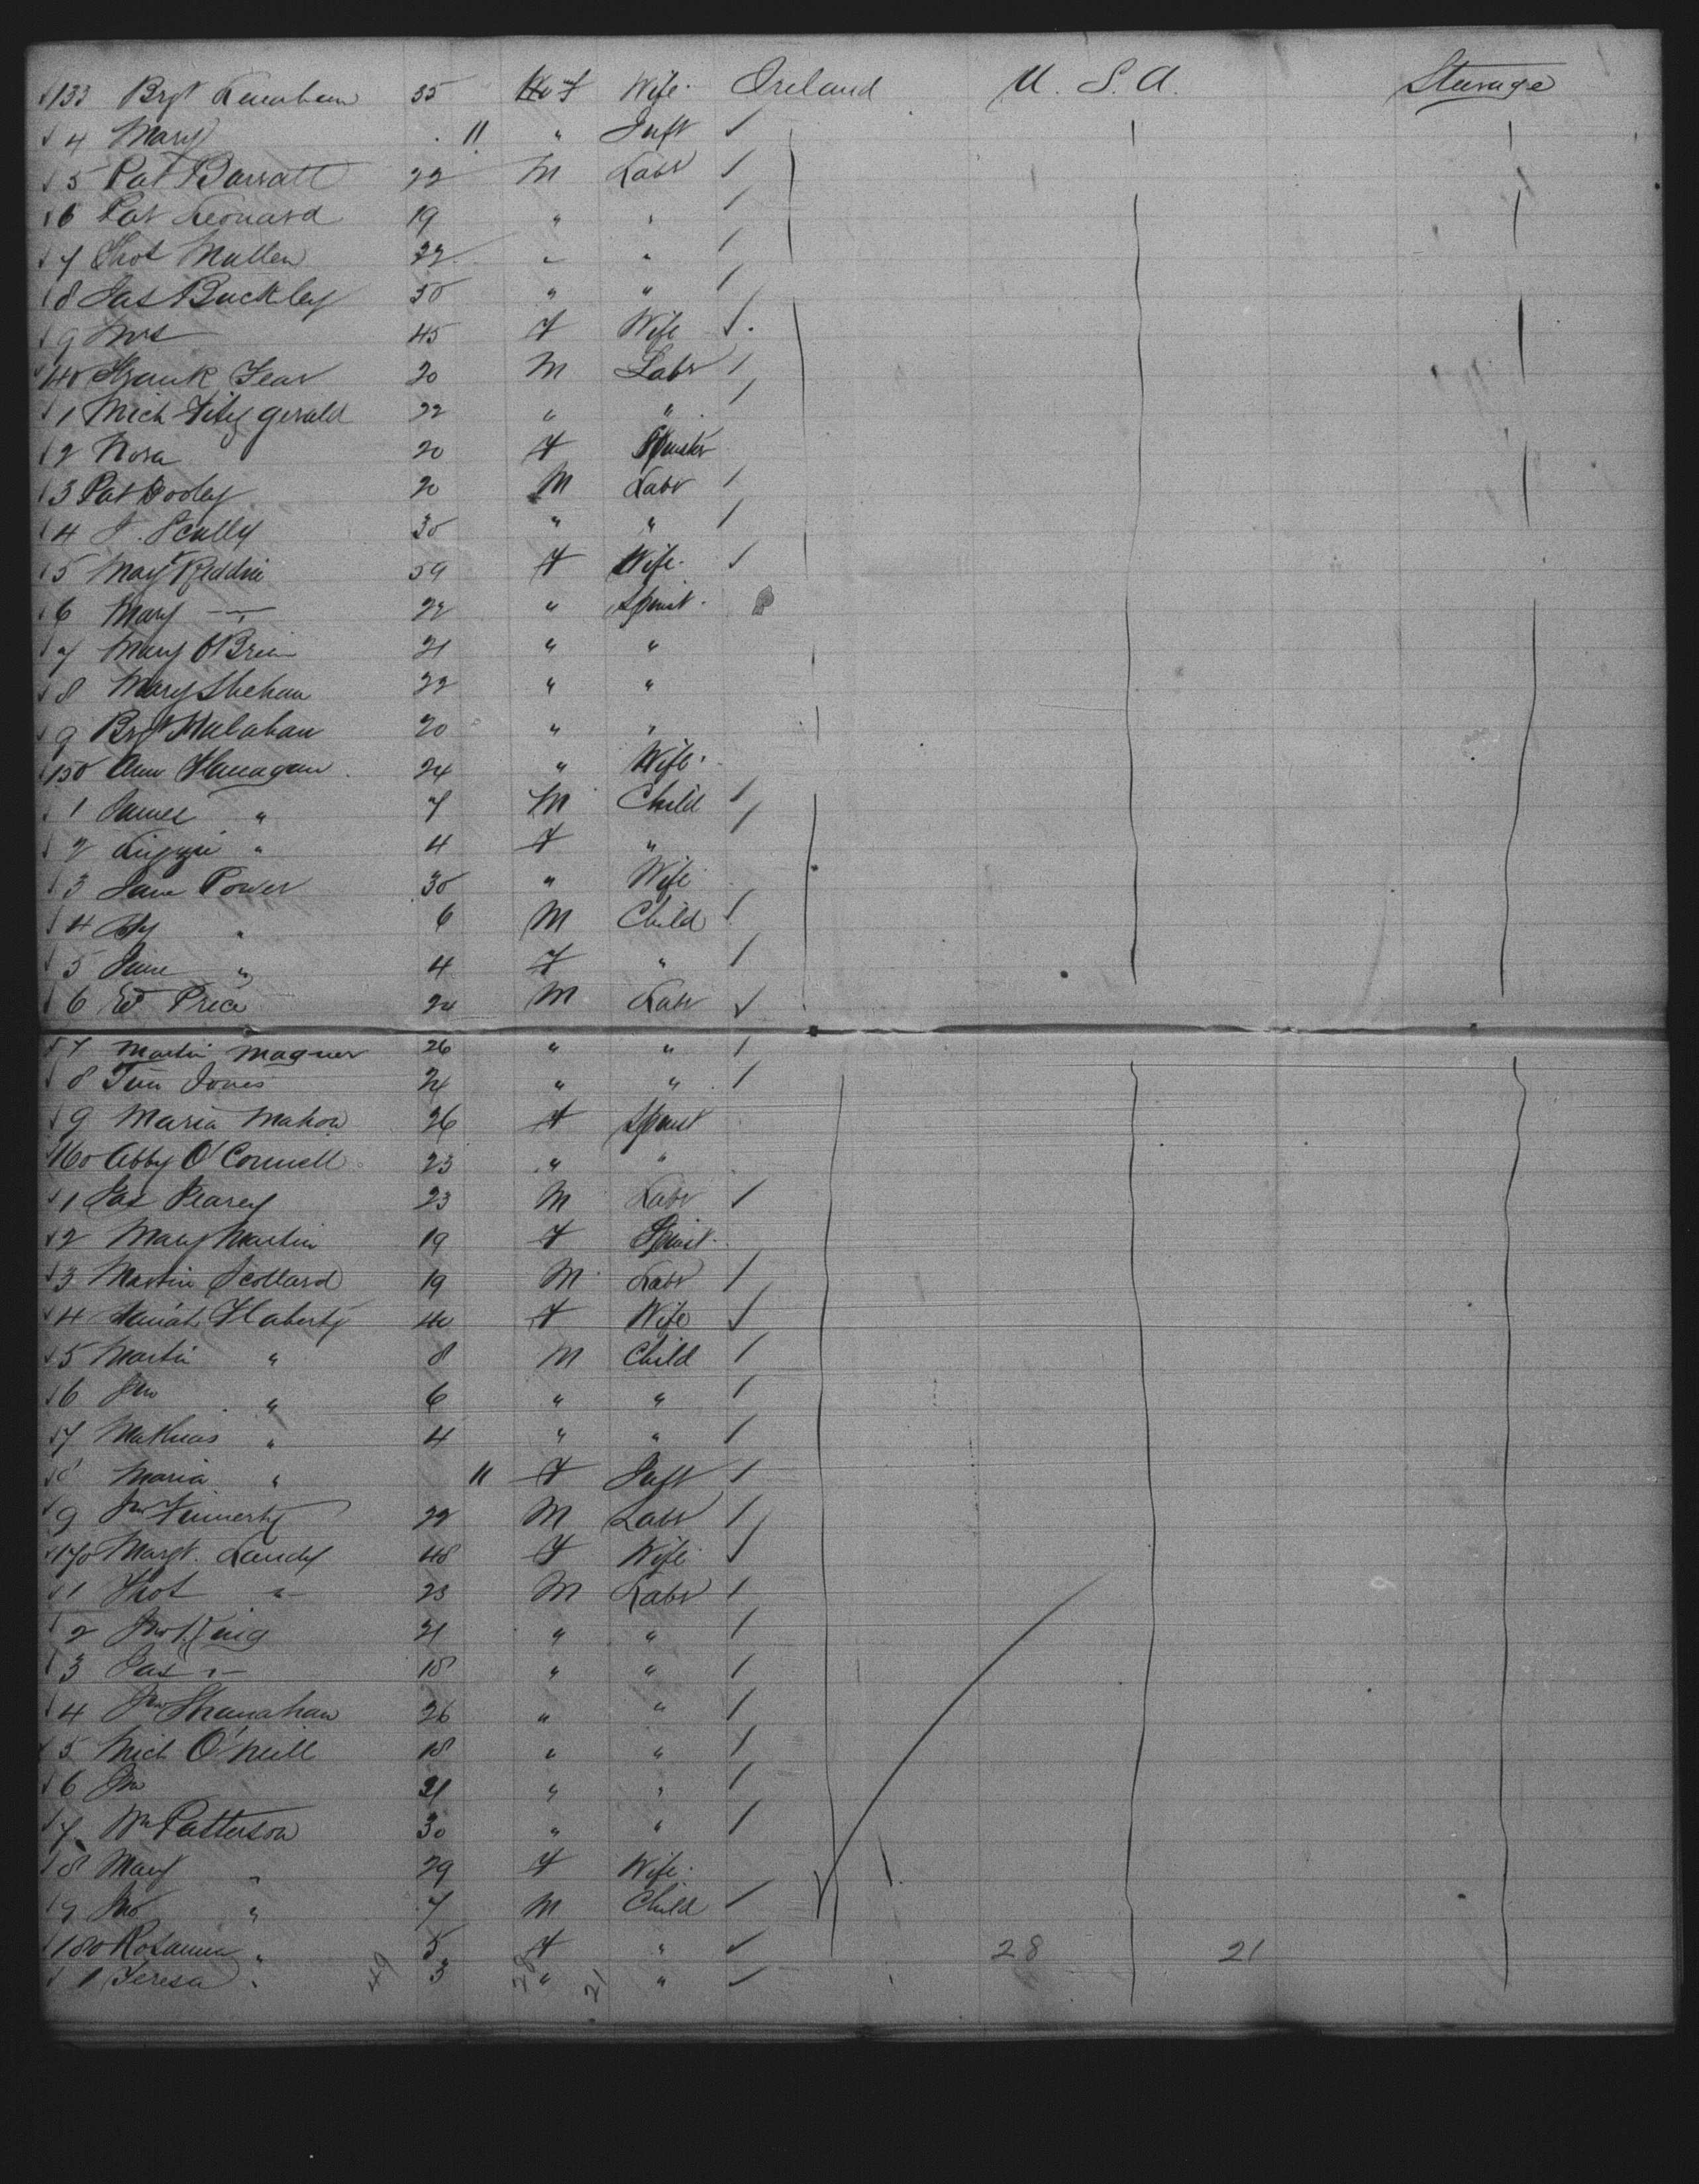 133 Brgt Lenahan 35 F Wife Ireland U. S. A. Steerage
4 Mary 11 " Inft
5 Pat Barratt 22 M Labr
6 Pat Leonard 19 " "
7 Thos Mullen 22 " "
8 Jas Buckley 50 " "
9 Mrs 45 F Wife
140 Frank Fear 20 M Labr
1 Mich Fitzgerald 22 " "
2 Nora 20 F Spinster
3 Pat Dooley 20 M Labr
4 J. Scully 30 " "
5 Mary Reddin 59 F Wife
6 Mary — 22 " Spinst.
7 Mary O'Brien 21 " "
8 Mary Shehan 22 " "
9 Brgt Mulahan 20 " "
150 Ann Flanagan 24 " Wife
1 James " 7 M Child
2 Lizzie " 4 F "
3 Jane Power 30 " Wife
4 " 6 M Child
5 Jane " 4 F "
6 Ed Price 24 M Labr
7 Martin Magner 26 " "
8 Tim Jones 24 " "
9 Maria Mahon 26 F Spinst
160 Abby O'Connell 23 " "
1 Jas Pearcy 23 M Labr
2 Mary Martin 19 F Spinst
3 Martin Scollard 19 M Labr
4 Flaherty 40 F Wife
5 Martin " 8 M Child
6 Jno " 6 " "
7 Mathias " 4 " "
8 Maria " 11 F Inft
9 Jno Finnerty 22 M Labr
170 Margt. Landy 48 F Wife
1 Thos " 23 M Labr
2 Jno King 21 " "
3 Jas " 18 " "
4 Jno Shanahan 26 " "
5 Mich O'Neill 18 " "
6 Jno 21 " "
7 Wm Patterson 30 " "
8 Mary " 29 F Wife
9 Jno " 7 M Child
180 Rosanna " 5 F " 28 21
1 Teresa " 49 3 28 " 21 "